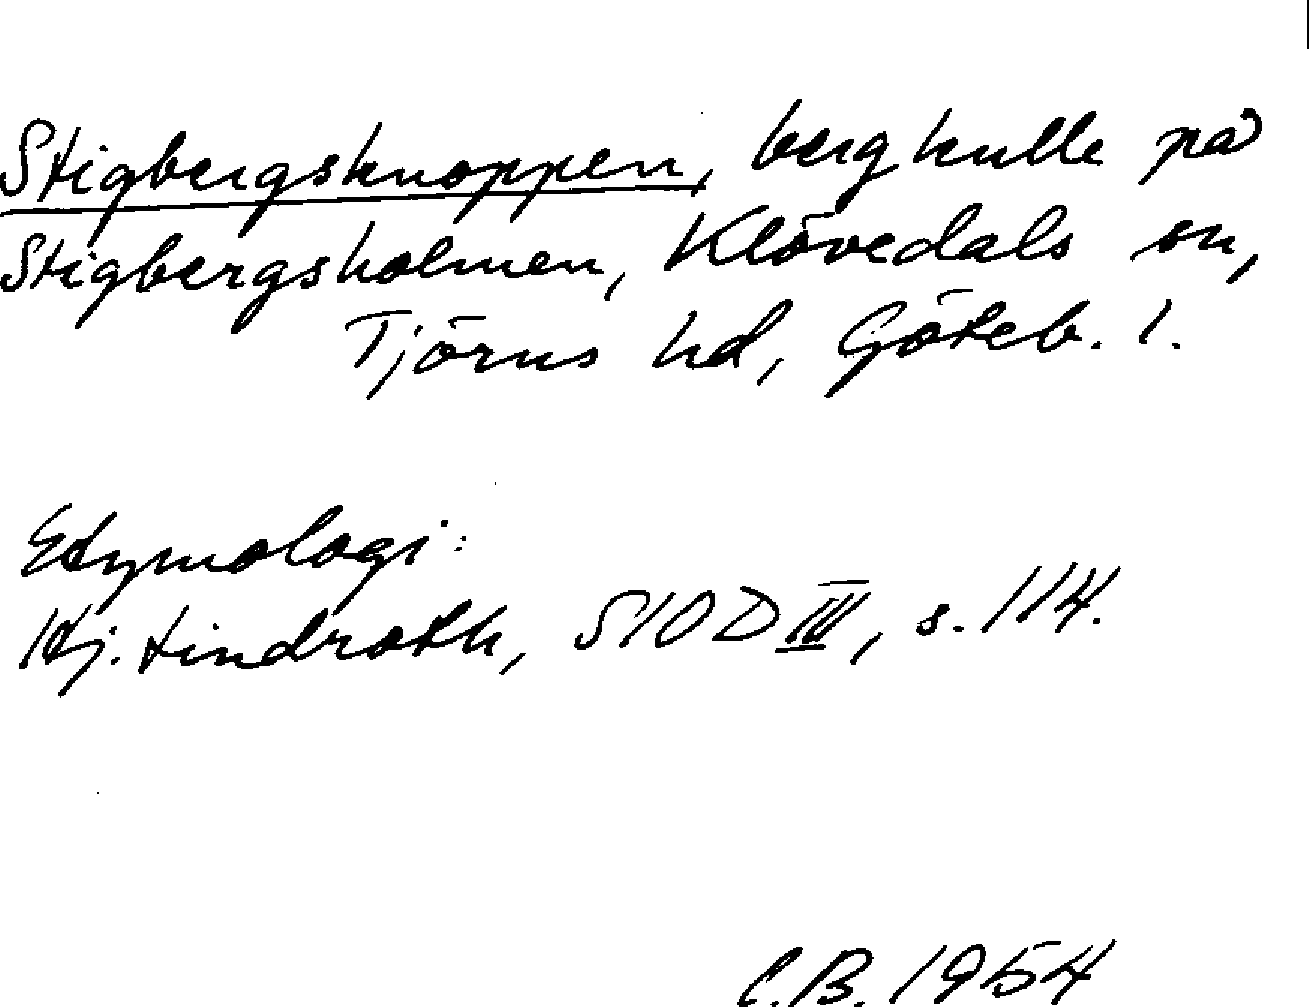 Stigbergsknoppen, bergkulle på
Stigbergsholmen, Klövedals sn,
Tjörns hd, Göteb. l.
Etymologi:
Hj. Lindroth, SIOD III, s. 114.
C.B. 1954